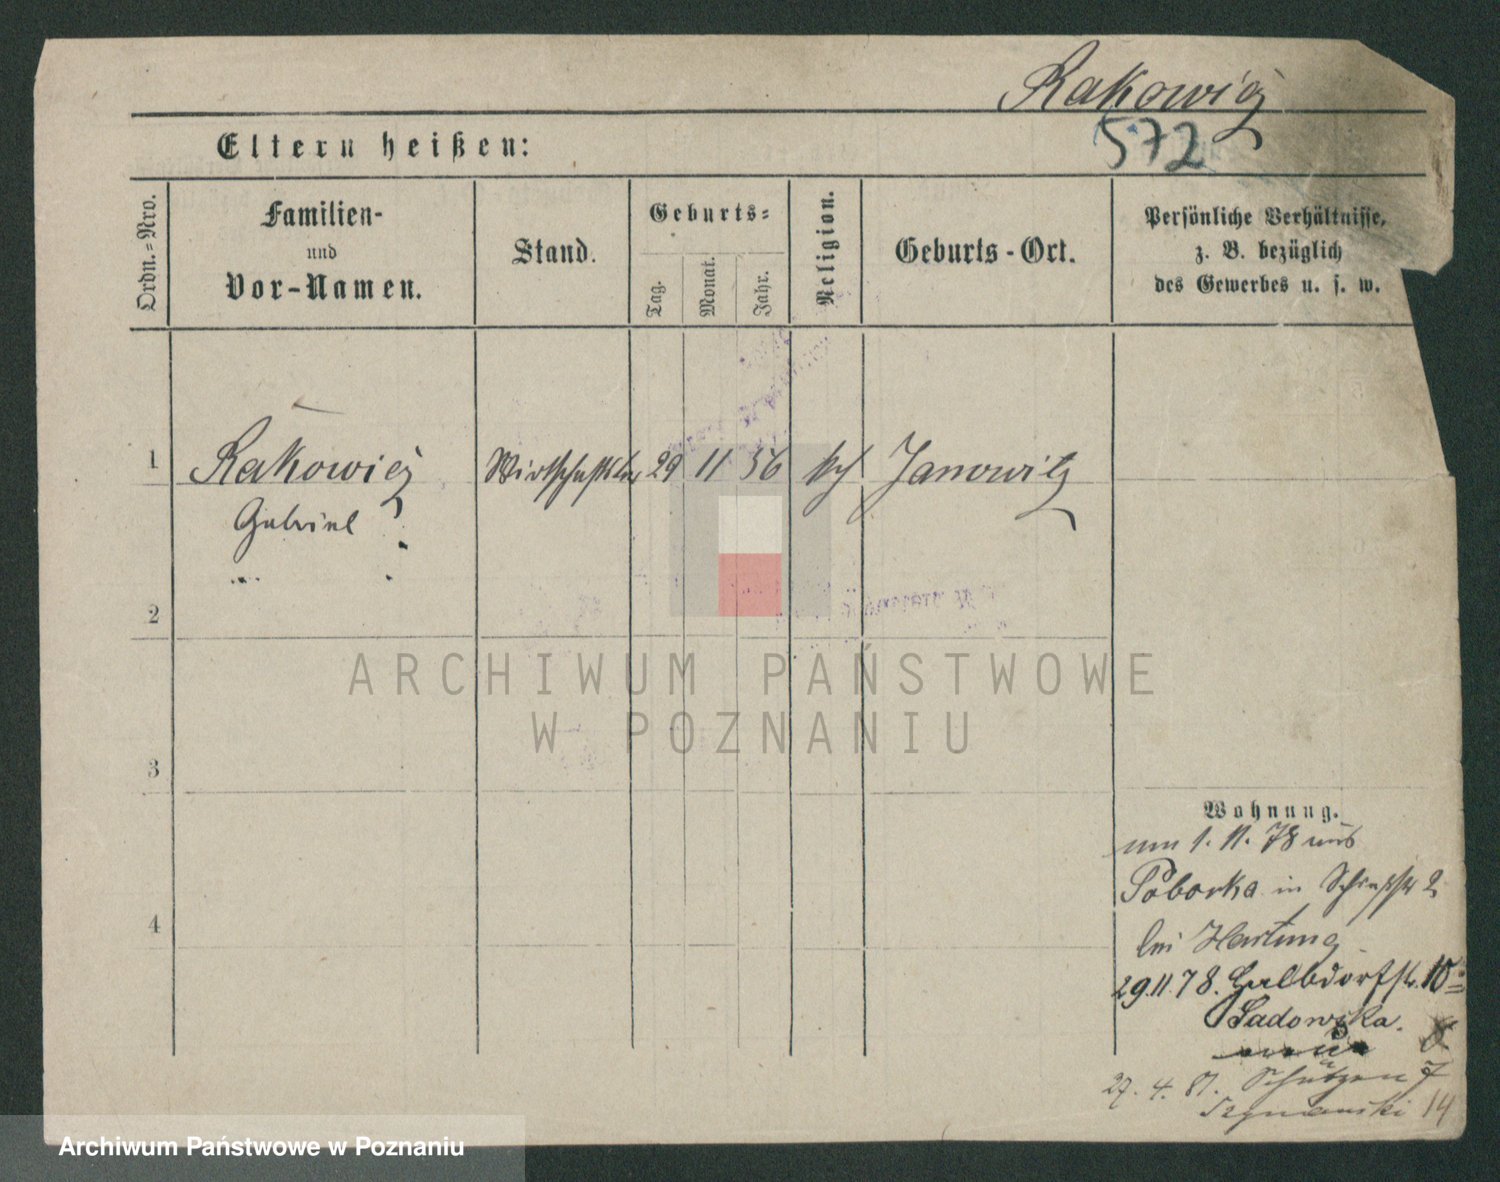 Rakowicz
572
Eltern heißen:
Ordn.-Nro.
Familien-
und
Vor-Namen.
Stand.
Geburts-
Tag.
Monat.
Jahr.
Religion.
Geburts-Ort.
Persönliche Verhältnisse,
z. B. bezüglich
des Gewerbes u. s. w.
1 Rakowicz 29 11 56 Janowitz
Gabriel
2
ARCHIWUM PAŃSTWOWE
W POZNANIU
3
4
Wohnung.
um 1. 11. 78 aus
Poborka in 2
bei Hartung
29.11.78. Halbdorfstr. 10
Sadowska.
27. 4. 81. Schützen 7
Szymanski 14
Archiwum Państwowe w Poznaniu